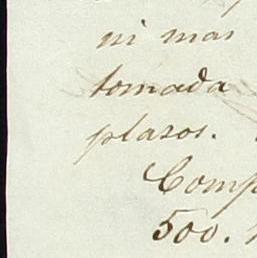 ni mas
tomada
plasos.
Comp
500.